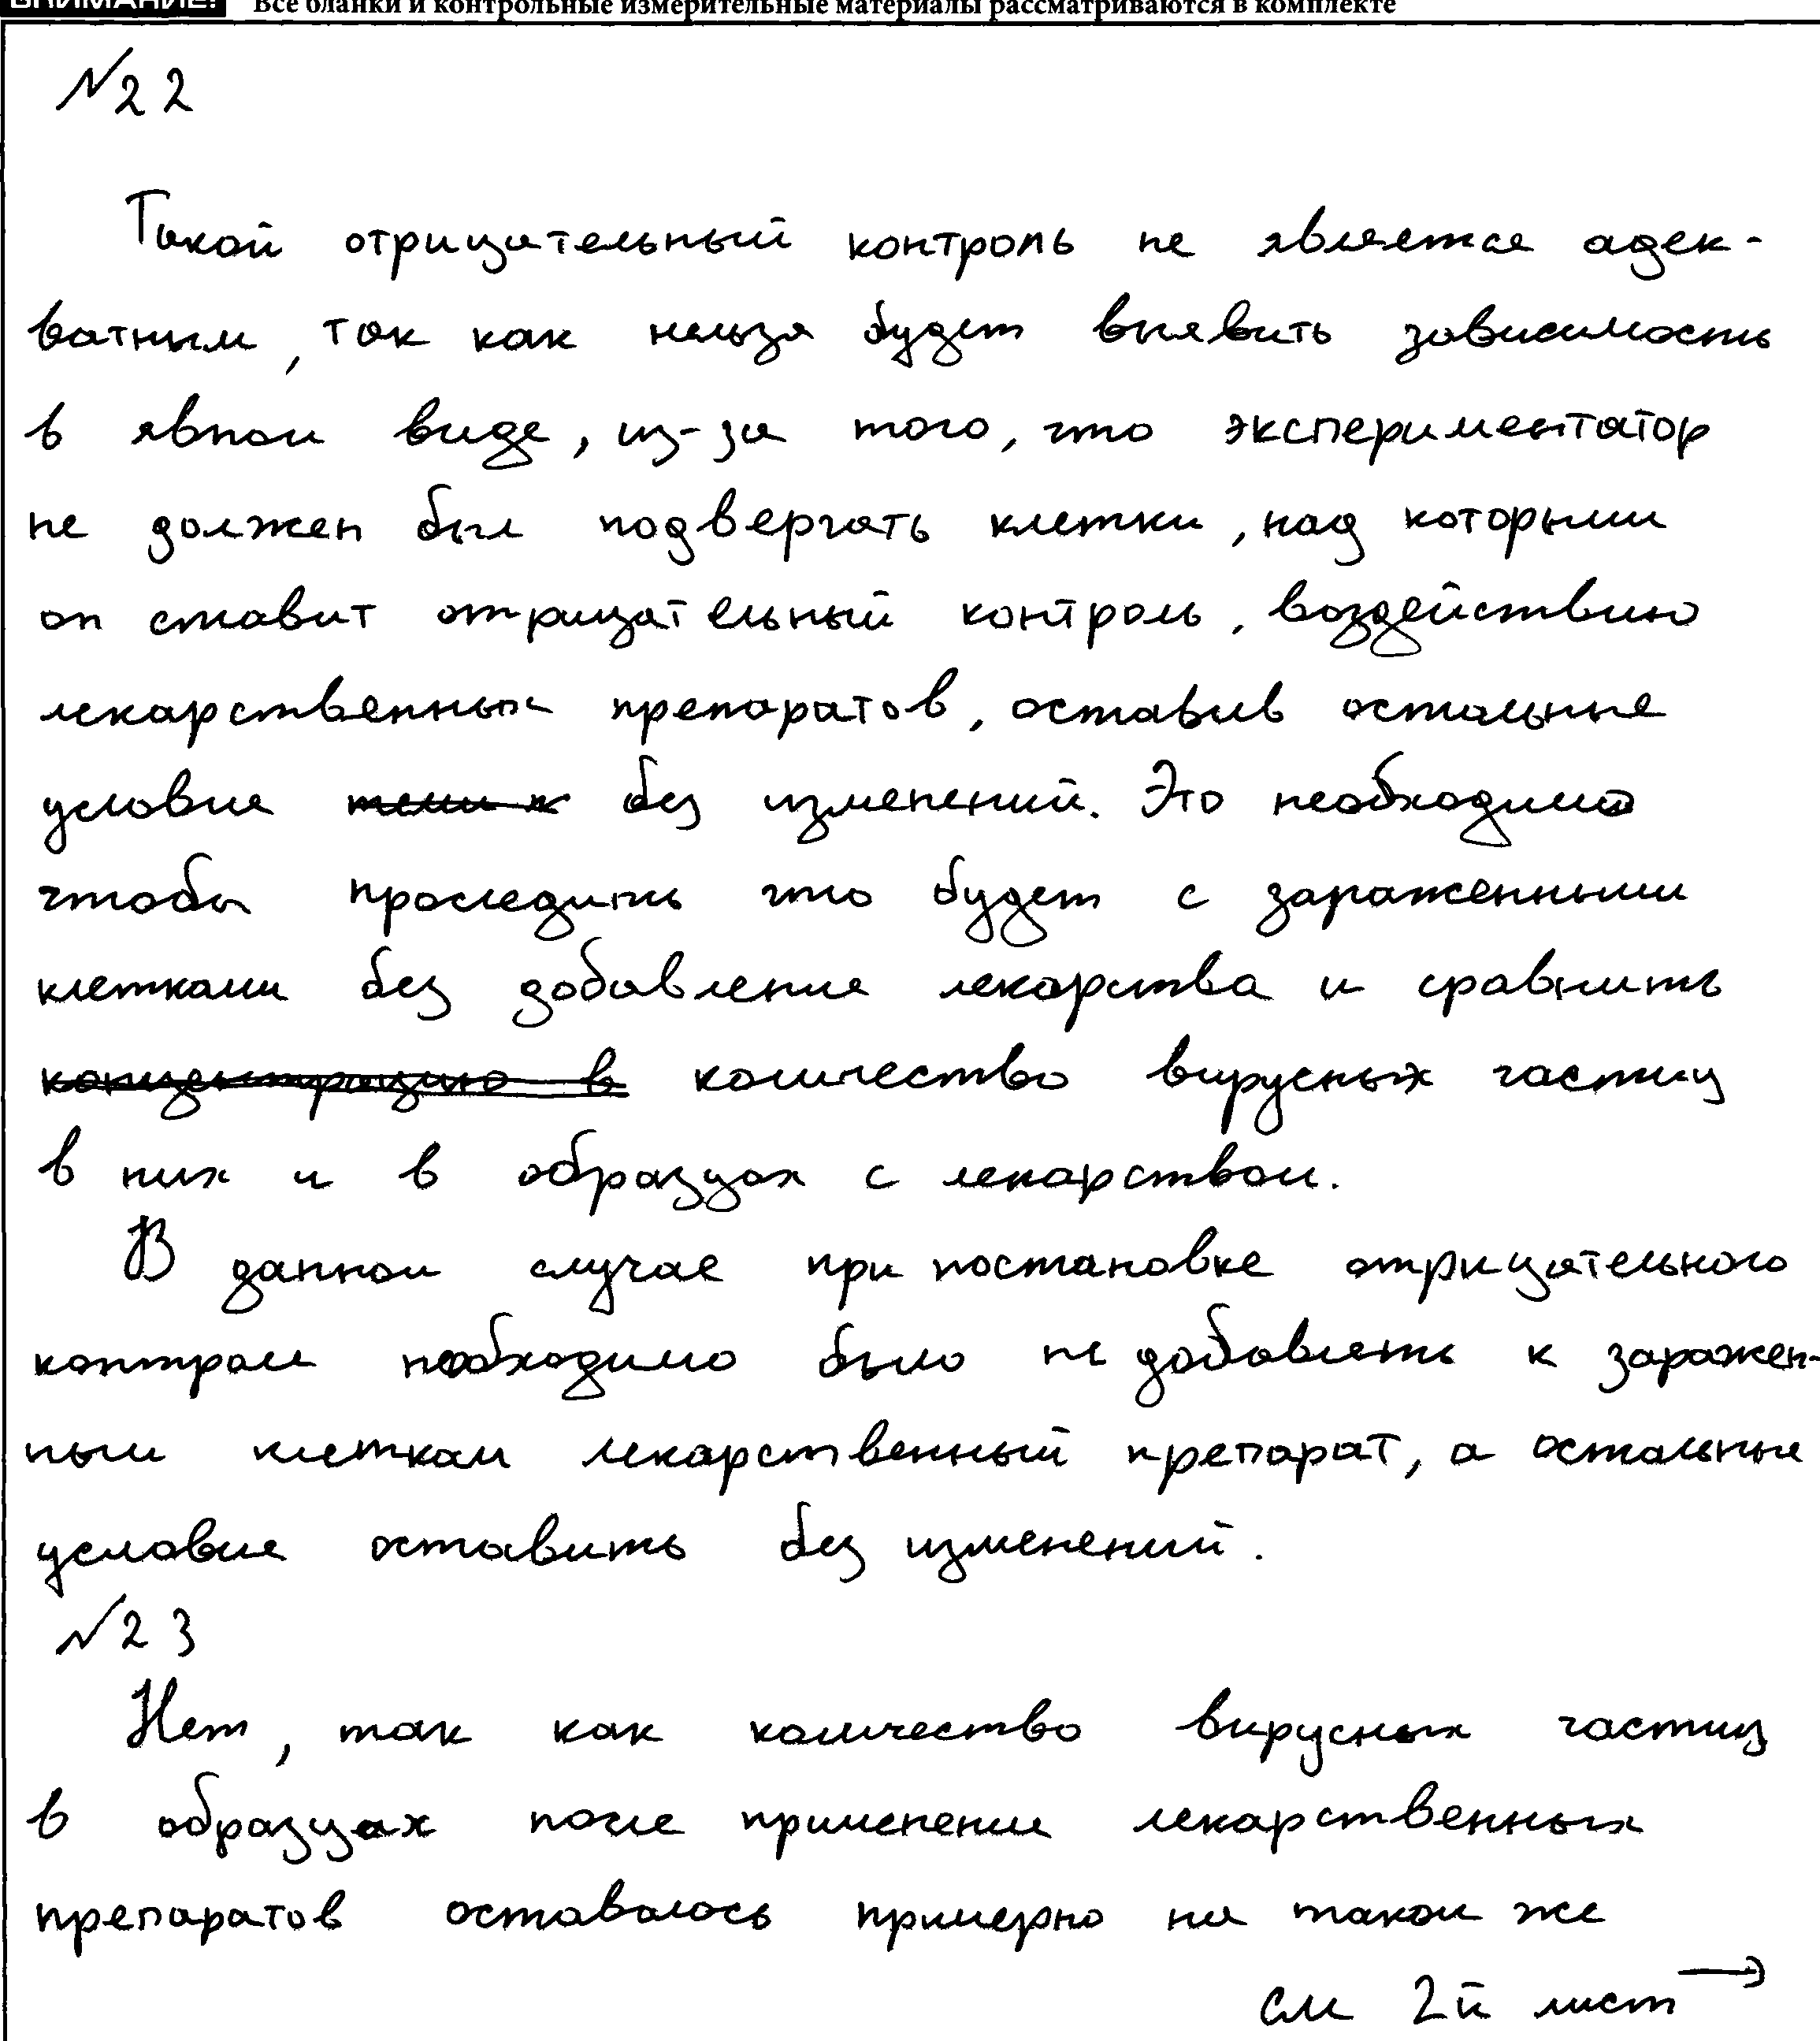 ВНИМАНИЕ! Все бланки и контрольные измерительные материалы рассматриваются в комплекте
№22
Такой отрицательный контроль не является адек-
ватным, так как нельзя будет выявить зависимость
в явном виде, из-за того, что экспериментатор
не должен был подвергать клетки, над которыми
он ставит отрицательный контроль, воздействию
лекарственных препаратов, оставив остальные
условия без изменений. Это необходимо
чтобы проследить что будет с зараженными
клетками без добавления лекарства и сравнить
концентрацию в количество вирусных частиц
в них и в образцах с лекарством.
В данном случае при постановке отрицательного
контроля необходимо было не добавлять к заражен-
ным клеткам лекарственный препарат, а остальные
условия оставить без изменений.
№23
Нет, так как количество вирусных частиц
в образцах после применения лекарственных
препаратов оставалось примерно на таком же
см 2й лист →